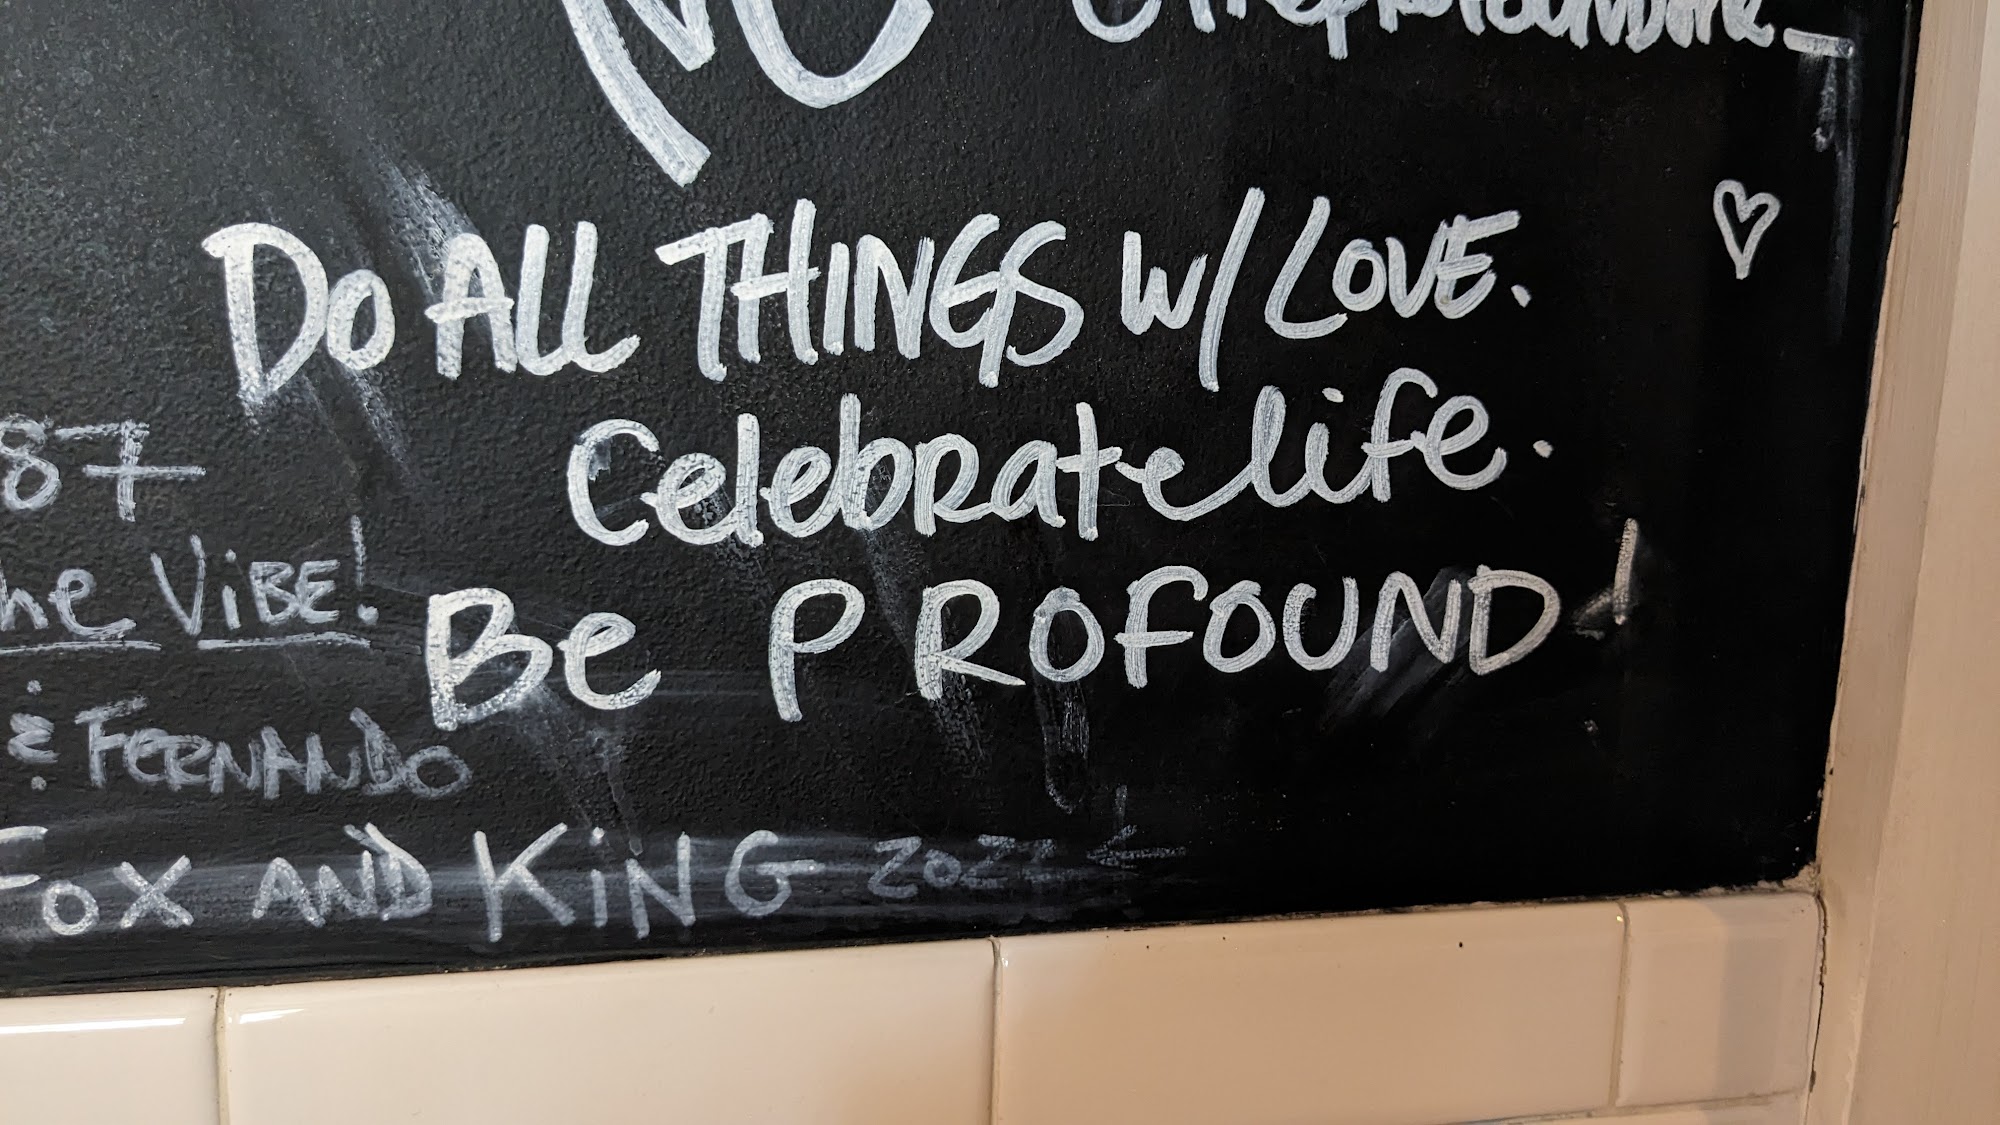 Do All THINGS w/ LOVE.
Celebrate life.
Be PROFOUND!
87
he ViBE!
& FERNANDO
Fox AND KiNG 2022